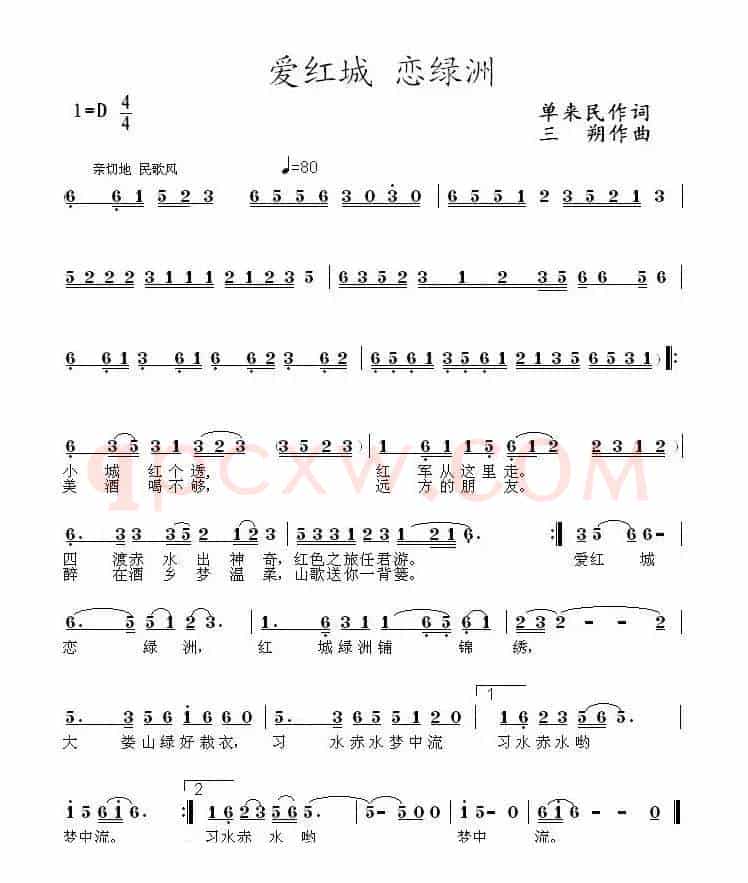 爱红城 恋绿洲
1=D 4/4
单来民作词
三 朔作曲
亲切地 民歌风 ♩=80
(6 6 6 1 5 2 3 6 5 5 6 3 0 3 0 | 6 5 5 1 2 3 5 2 1 3 |
5 2 2 2 3 1 1 1 2 1 2 3 5 | 6 3 5 2 3 1 2 3 5 6 6 5 6 |
6 6 6 1 3 6 1 6 6 2 3 6 2 | 6 5 6 1 3 5 6 1 2 1 3 5 6 5 3 1) :
6 3 5 3 1 3 2 3 (3 5 2 3) | 1 6 1 1 5 6 1 2 (2 3 1 2) |
小 城 红个透, 红 军从这里走。
美 酒 喝不够, 远 方的朋 友。
qpcxw.COM
6. 3 3 3 5 5 2 1 2 3 | 5 3 3 1 2 3 1 2 1 6. :| 3 5 6 6 - |
四 渡赤 水 出 神 奇, 红色之旅任君游。 爱红 城
醉 在酒 乡 梦 温 柔, 山歌送你一背篓。
6. 5 5 1 2 3. | 1. 6 3 1 1 6 5 1 6 | 2 3 2 - - 2 0 |
恋 绿 洲, 红 城绿洲铺 锦 绣,
1
5. 5 5 6 1 6 6 0 | 5. 3 5 2 3 5 1 2 0 | 1 6 2 3 5 6 5. |
大 娄山绿好栽衣, 习 水赤水梦中流 习水赤水哟
2
1 5 6 1 6. :| 1 6 2 3 5 6 5. | 5 - 5 0 0 | 1 - 5 | 6 1 - 1 0 |
梦中流。 习水赤水 哟 梦中 流。